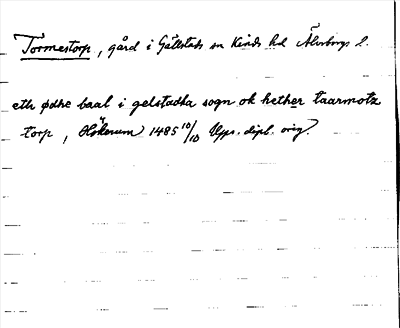 Tormestorp, gård i Gällstads sn Kinds hd Älvsborgs l.
eth ødhe baal i gelstadha sogn ok hether taarmotz
torp, Hökerum 1485 10/10 Upps. dipl. orig.